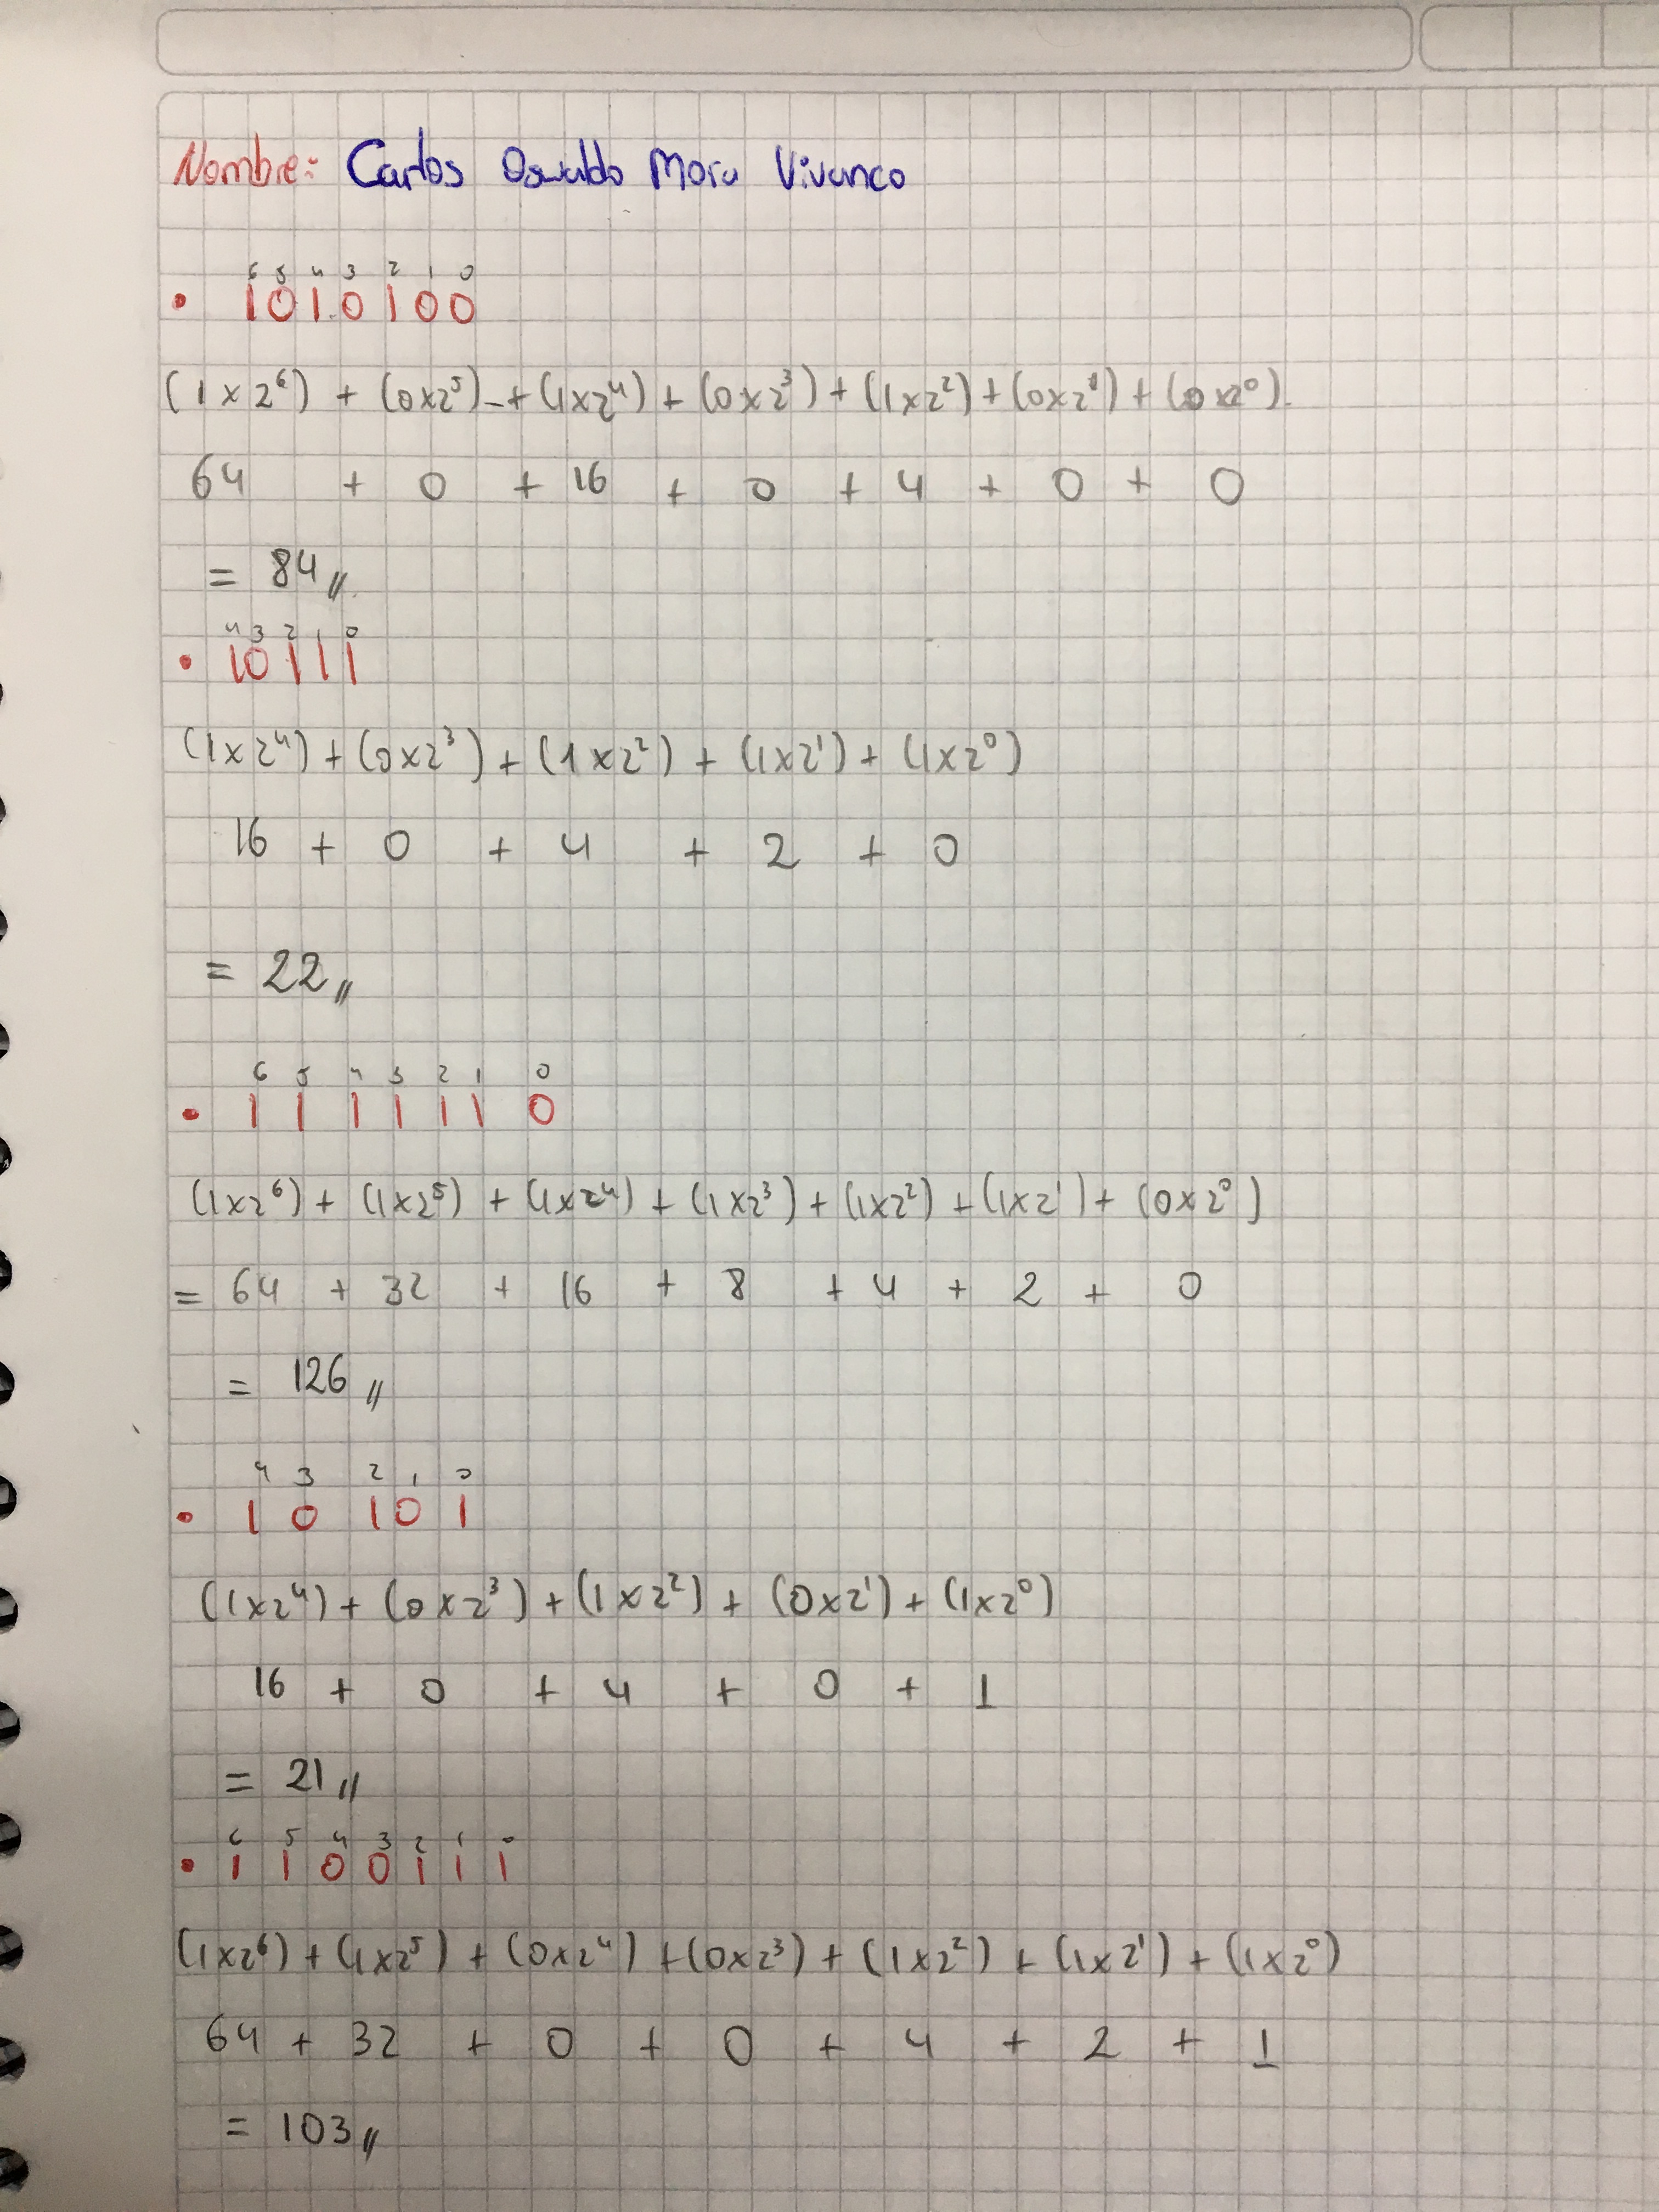 Nombre: Carlos Oswaldo Mora Vivanco
6 5 4 3 2 1 0
• 1010100
(1x2⁶) + (0x2⁵) + (1x2⁴) + (0x2³) + (1x2²) + (0x2¹) + (0x2⁰).
64 + 0 + 16 + 0 + 4 + 0 + 0
= 84//
4 3 2 0
• 10111
(1x2⁴) + (0x2³) + (1x2²) + (1x2¹) + (1x2⁰)
16 + 0 + 4 + 2 + 0
= 22//
6 5 4 3 2 1 0
• 1 1 1 1 1 1 0
(1x2⁶) + (1x2⁵) + (1x2⁴) + (1x2³) + (1x2²) + (1x2¹) + (0x2⁰)
= 64 + 32 + 16 + 8 + 4 + 2 + 0
= 126//
4 3 2 1 0
• 1 0 1 0 1
(1x2⁴) + (0x2³) + (1x2²) + (0x2¹) + (1x2⁰)
16 + 0 + 4 + 0 + 1
= 21//
6 5 4 3 2 1 0
• 1 1 0 0 1 1 1
(1x2⁶) + (1x2⁵) + (0x2⁴) + (0x2³) + (1x2²) + (1x2¹) + (1x2⁰)
64 + 32 + 0 + 0 + 4 + 2 + 1
= 103//